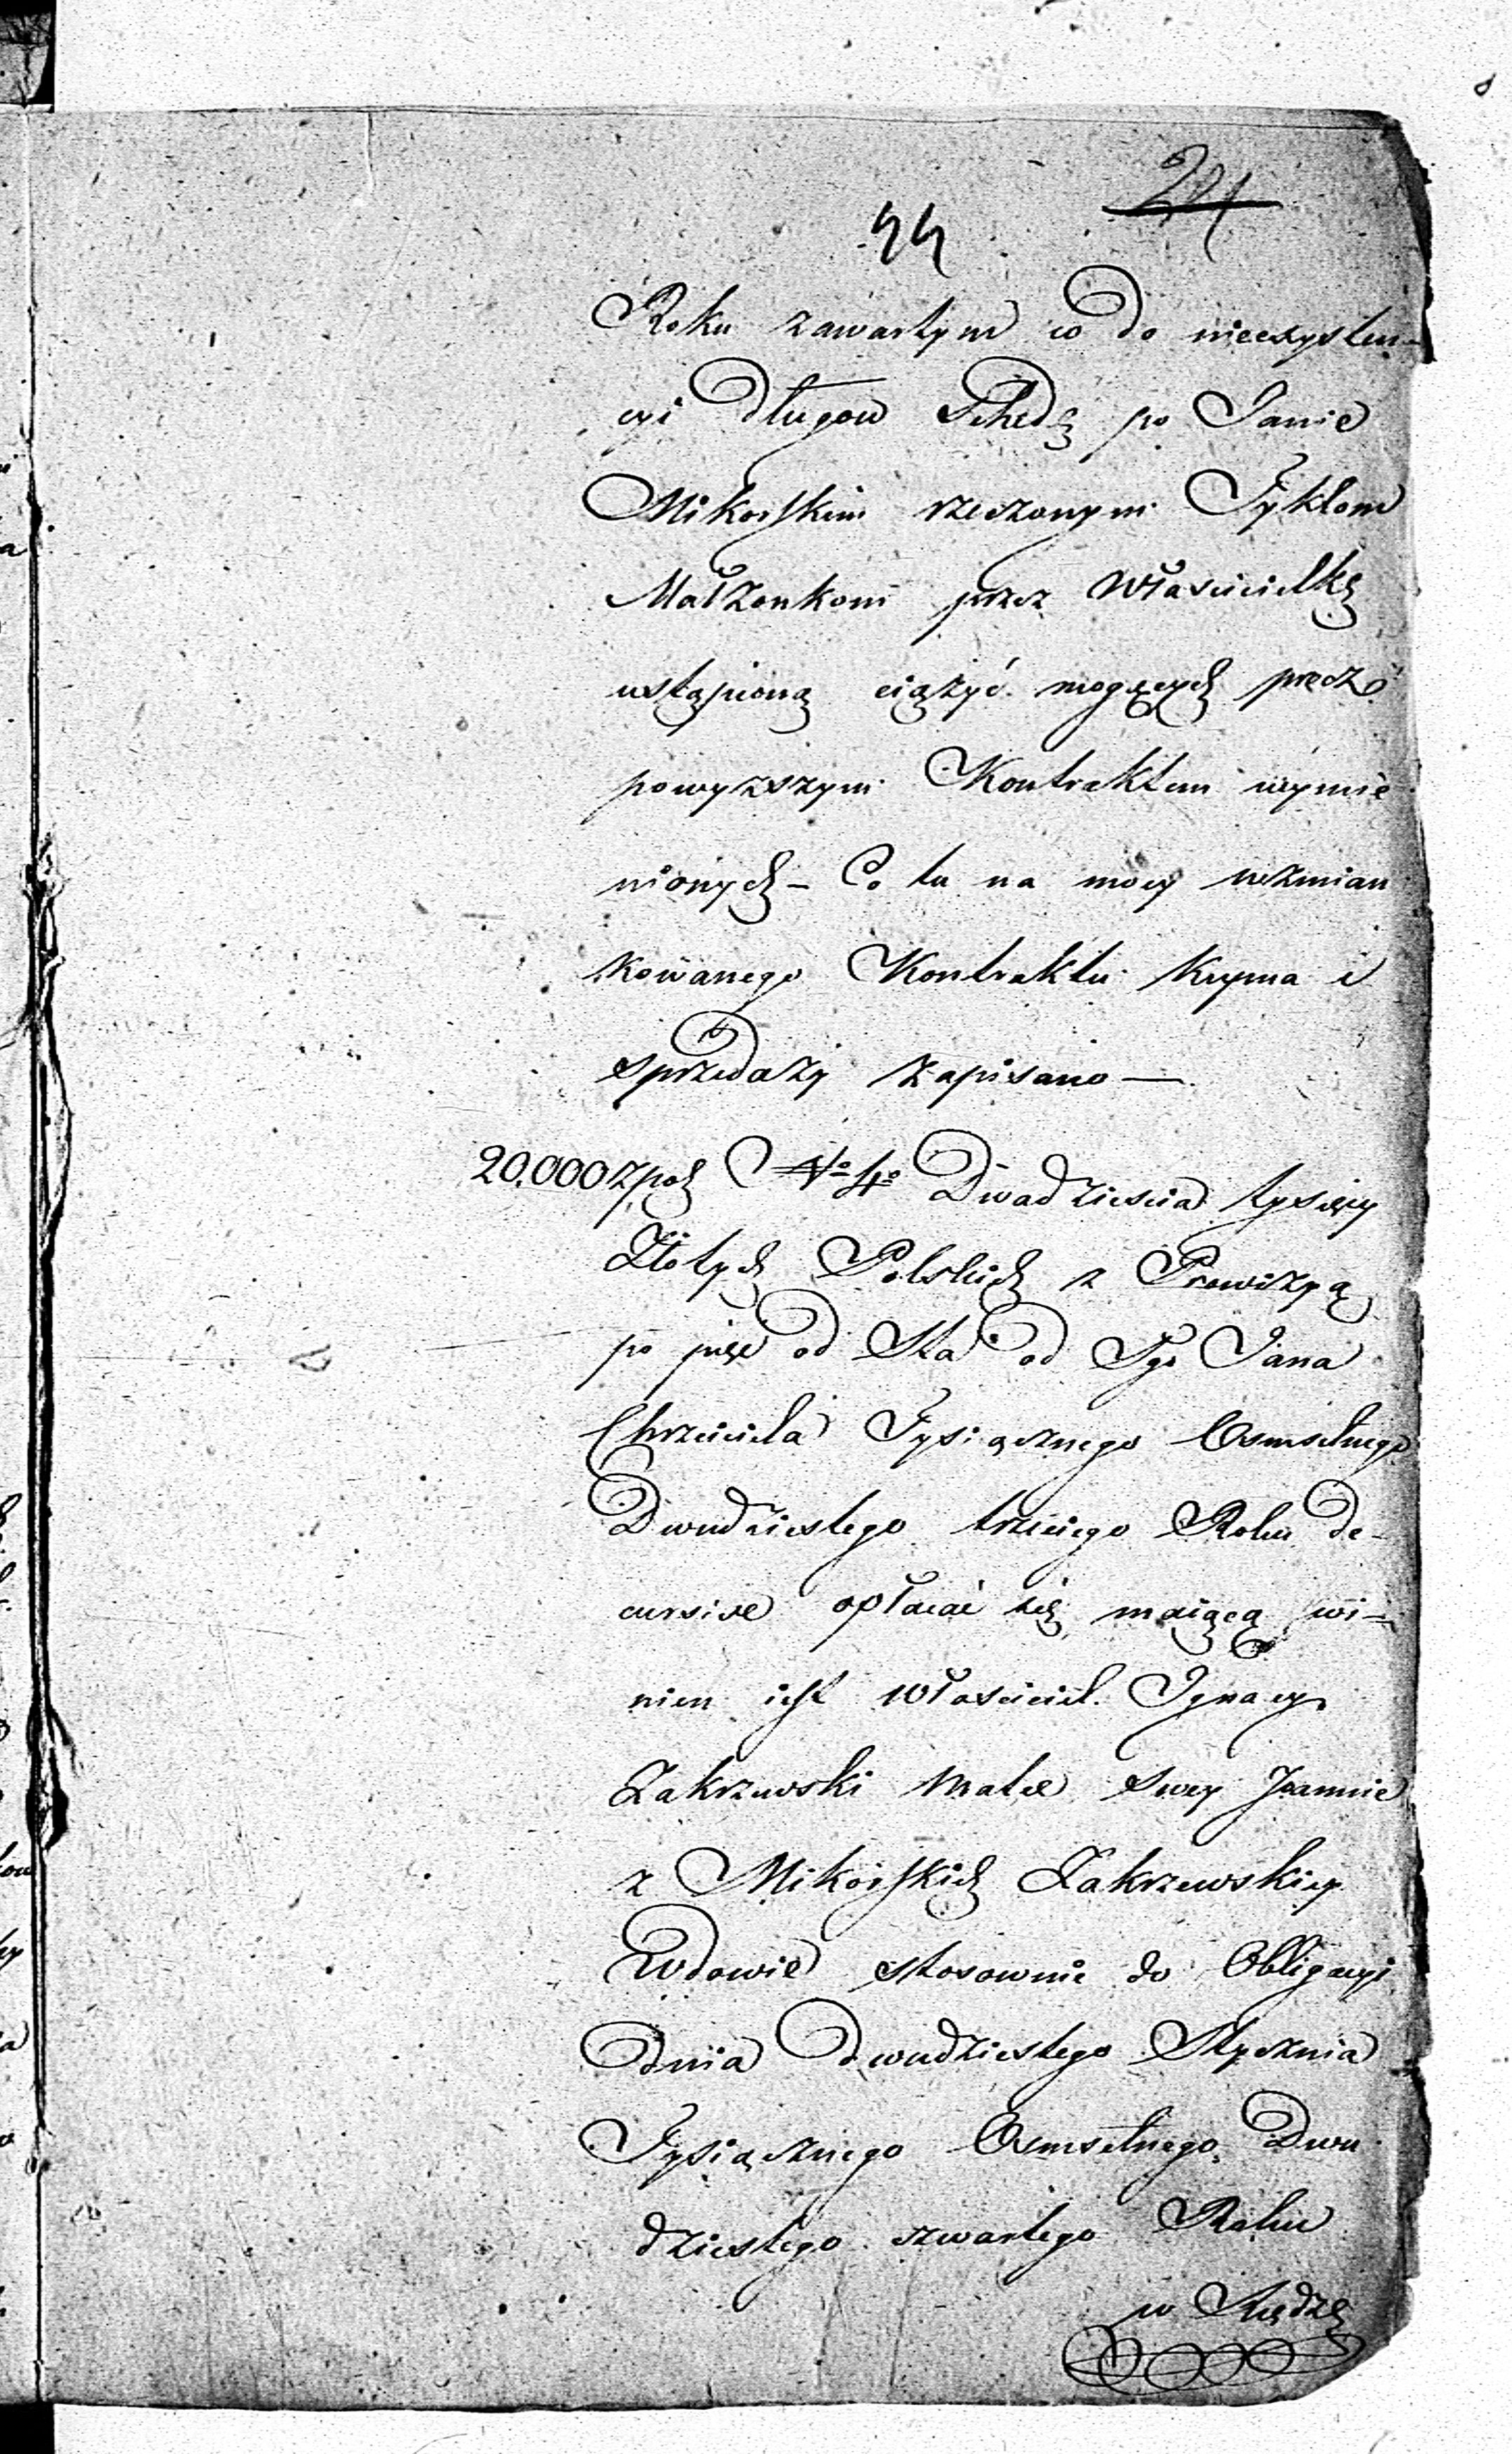 44 24
Roku zawartym co do nieexysten-
cyi długow Schedę po Janie
Mikorskim rzeczonym Tyklom
Małżonkom przez Właścicielkę
ustąpioną ciążyć mogących przez
powyższym Kontraktem wymie
nionych – Co tu na mocy wzmian
kowanego Kontraktu Kupna i
sprzedaży zapisano —
20.000 zpol No 4o Dwadzieścia tysięcy
Złotych Polskich z Prowizyą
po pięć od Sta od Sgo Jana
Chrzciciela Tysiącznego Osmsetnego
Dwudziestego trzeciego Roku de-
cursive opłacać się maiącą wi-
nien iest właściciel. Ignacy
Zakrzewski Matce swey Joannie
z Mikorskich Zakrzewskiey
Wdowie stosownie do Obligacyi
dnia dwudziestego Stycznia
Tysiącznego Osmsetnego Dwu
dziestego czwartego Roku
w